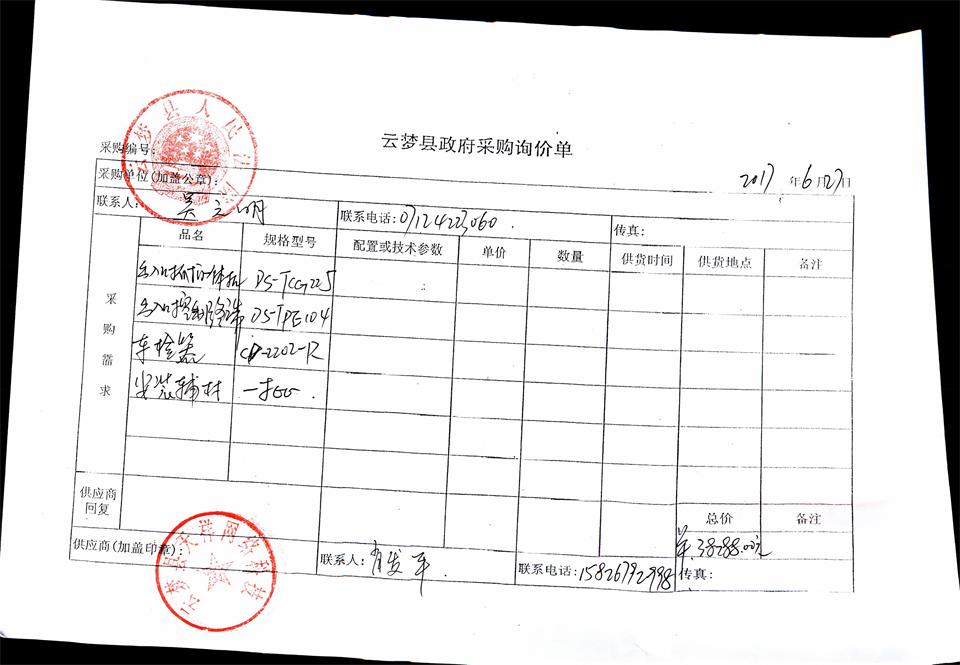 云梦县政府采购询价单
采购编号:
2017 年 6 月 27 日
采购单位(加盖公章):
云梦县人民
联系人: 吴立明
联系电话: 07124223060
传真:
采购需求
品名 规格型号 配置或技术参数 单价 数量 供货时间 供货地点 备注
出入口抓拍一体机 DS-TCG225
出入口控制终端 DS-TPE104
车检器 CD-2202-R
安装辅材 一批
供应商回复
总价 备注
38288.00元
供应商(加盖印章):
云梦县天洋网络科技
联系人: 肖发平
联系电话: 15826792998
传真: